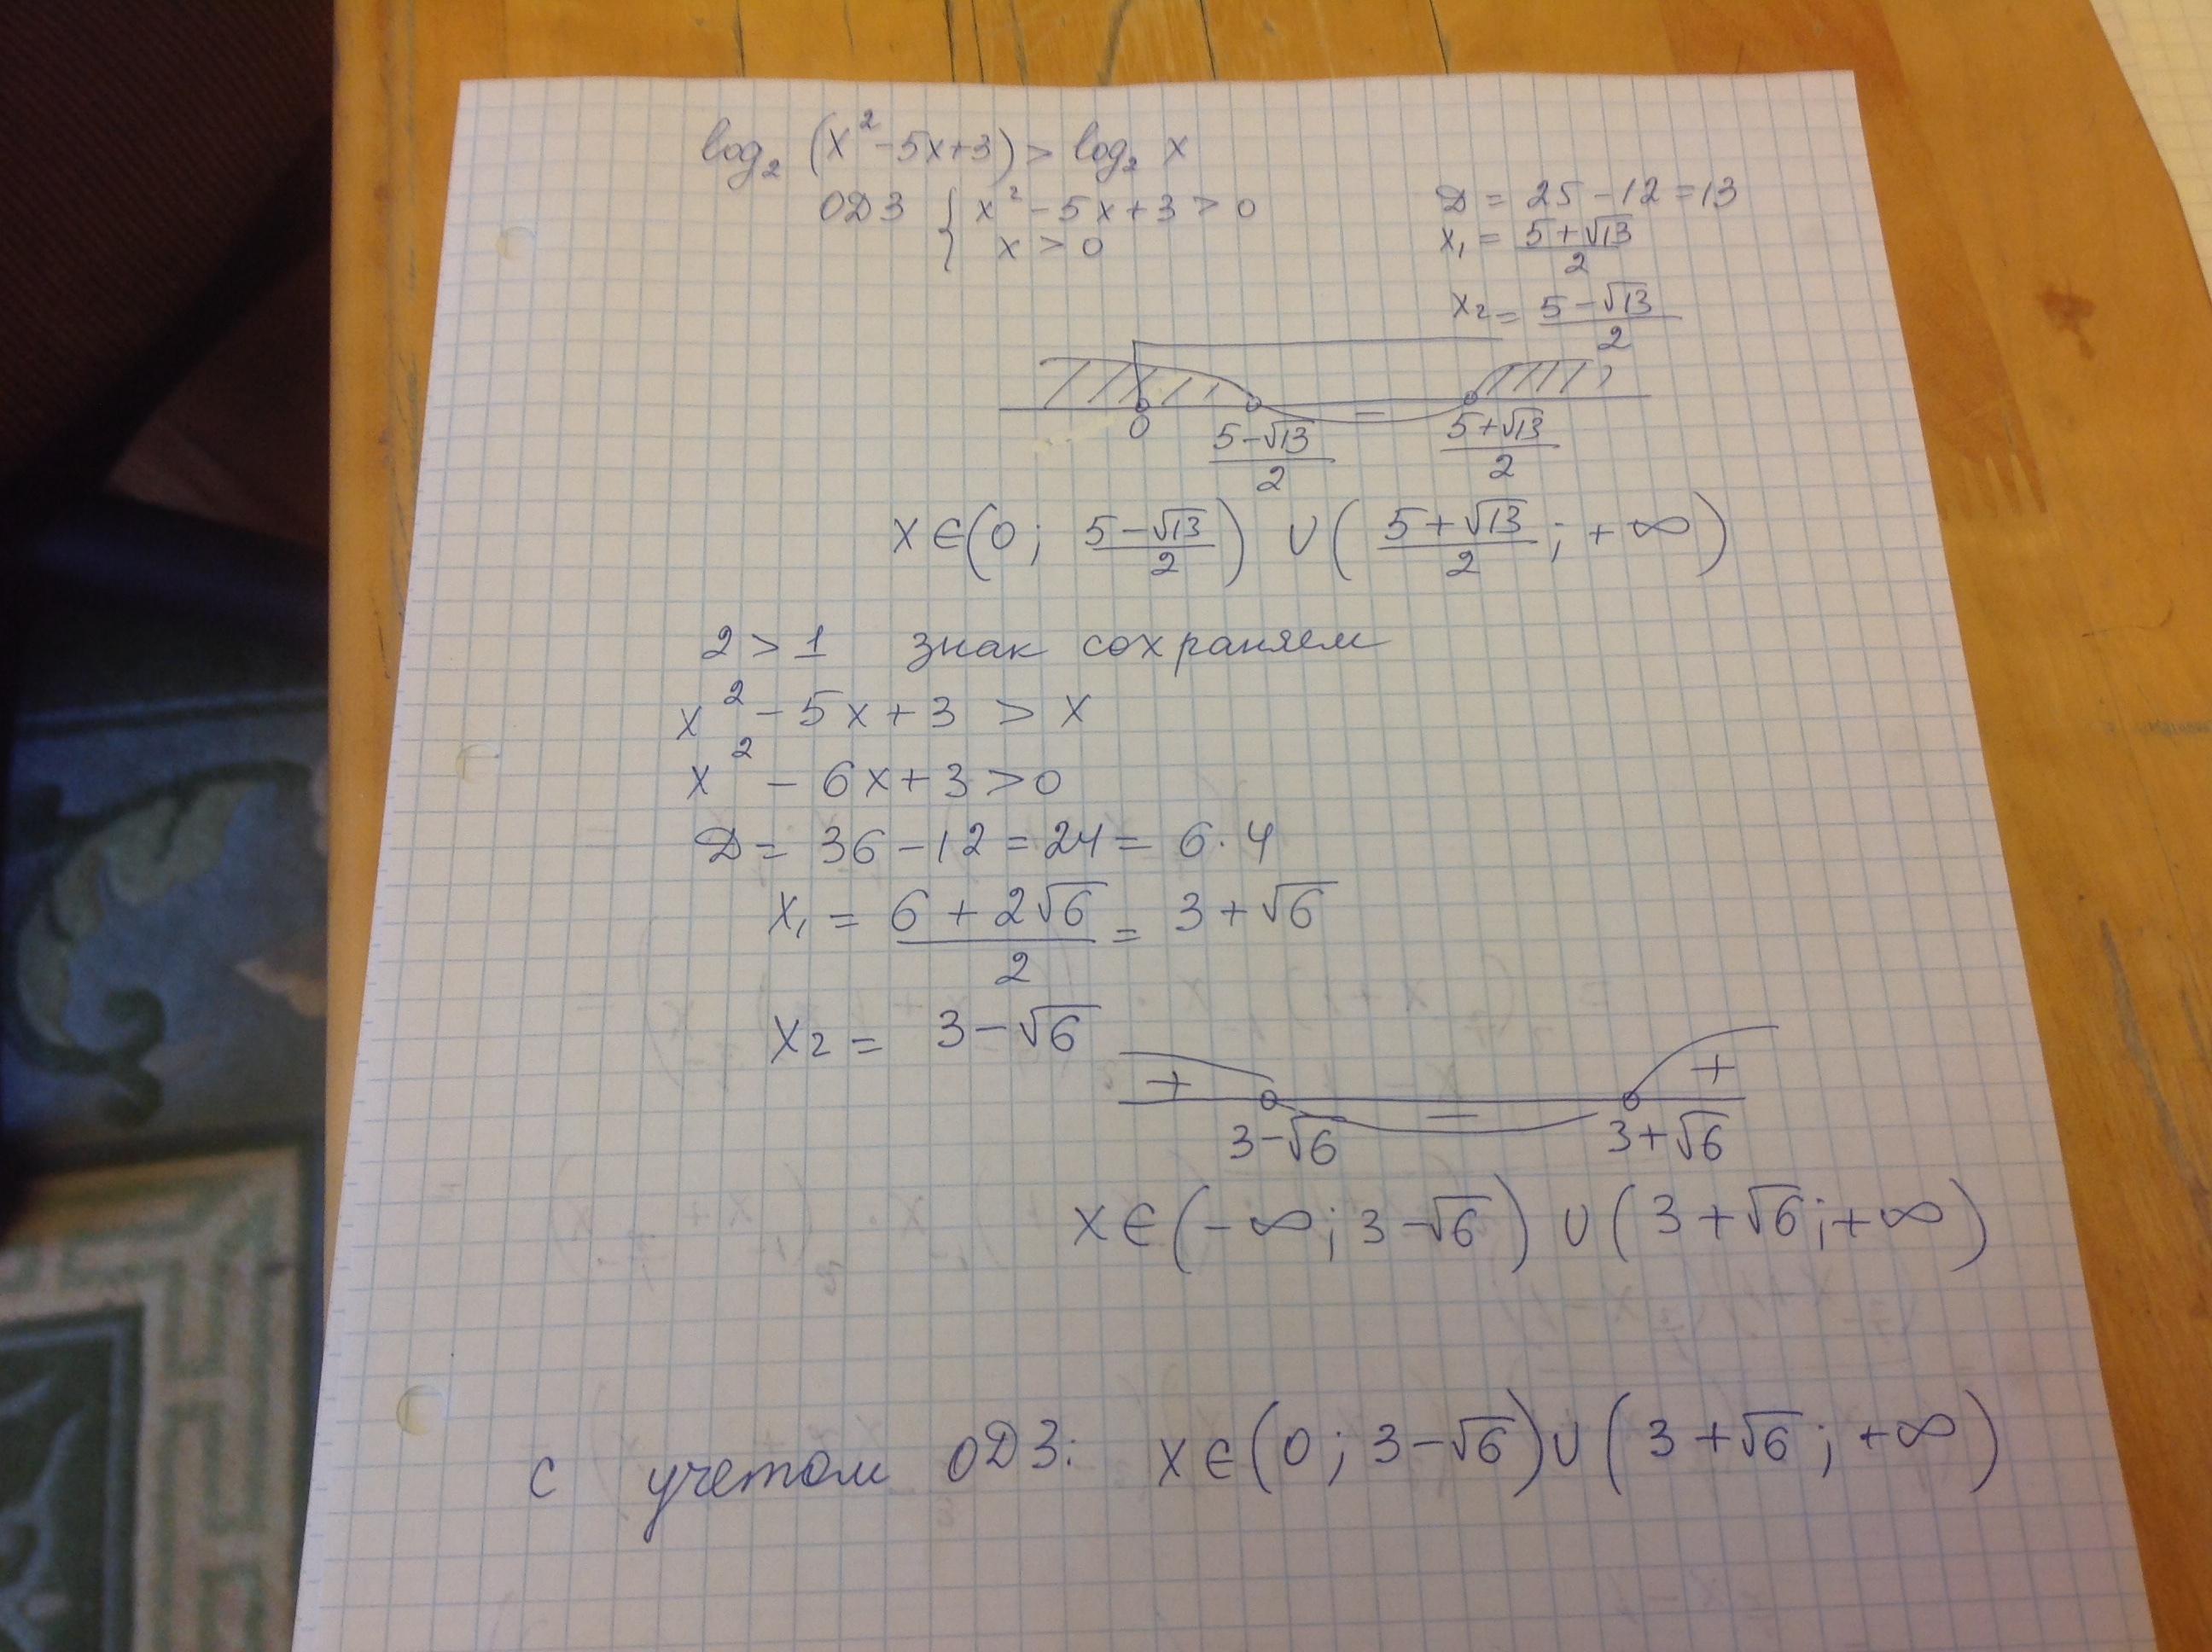 log₂ (x² - 5x + 3) > log₂ x
ОДЗ { x² - 5x + 3 > 0
x > 0
D = 25 - 12 = 13
x₁ = (5 + √13)/2
x₂ = (5 - √13)/2
0 (5 - √13)/2 − (5 + √13)/2
x ∈ (0; (5 - √13)/2) ∪ ((5 + √13)/2; + ∞)
2 > 1 знак сохраняем
x² - 5x + 3 > x
x² - 6x + 3 > 0
D = 36 - 12 = 24 = 6 · 4
x₁ = (6 + 2√6)/2 = 3 + √6
x₂ = 3 - √6
+ − +
3 - √6 3 + √6
x ∈ (- ∞; 3 - √6) ∪ (3 + √6; + ∞)
с учетом ОДЗ: x ∈ (0; 3 - √6) ∪ (3 + √6; + ∞)